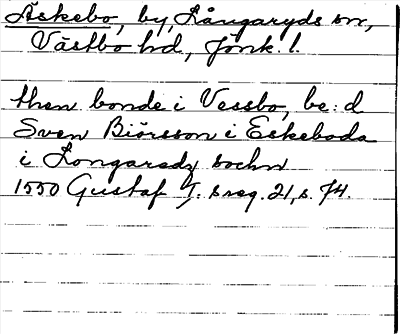 Äskebo, by, Långaryds sn,
Västbo hd, Jönk. l.
then bonde i Vessbo, be:d
Sven Biörsson i Eskeboda
i Longaredz sochn
1550 Gustaf I:s reg. 21, s. 74.